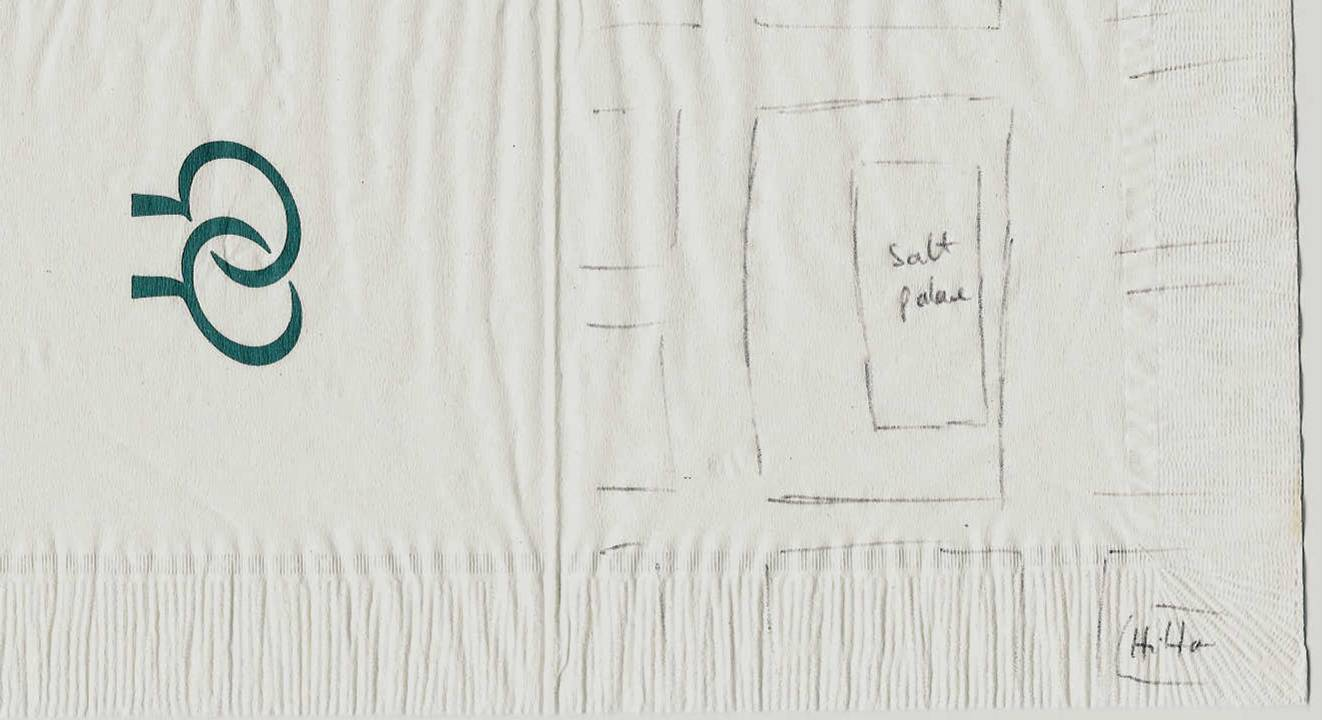 Salt
Palace
Hilton